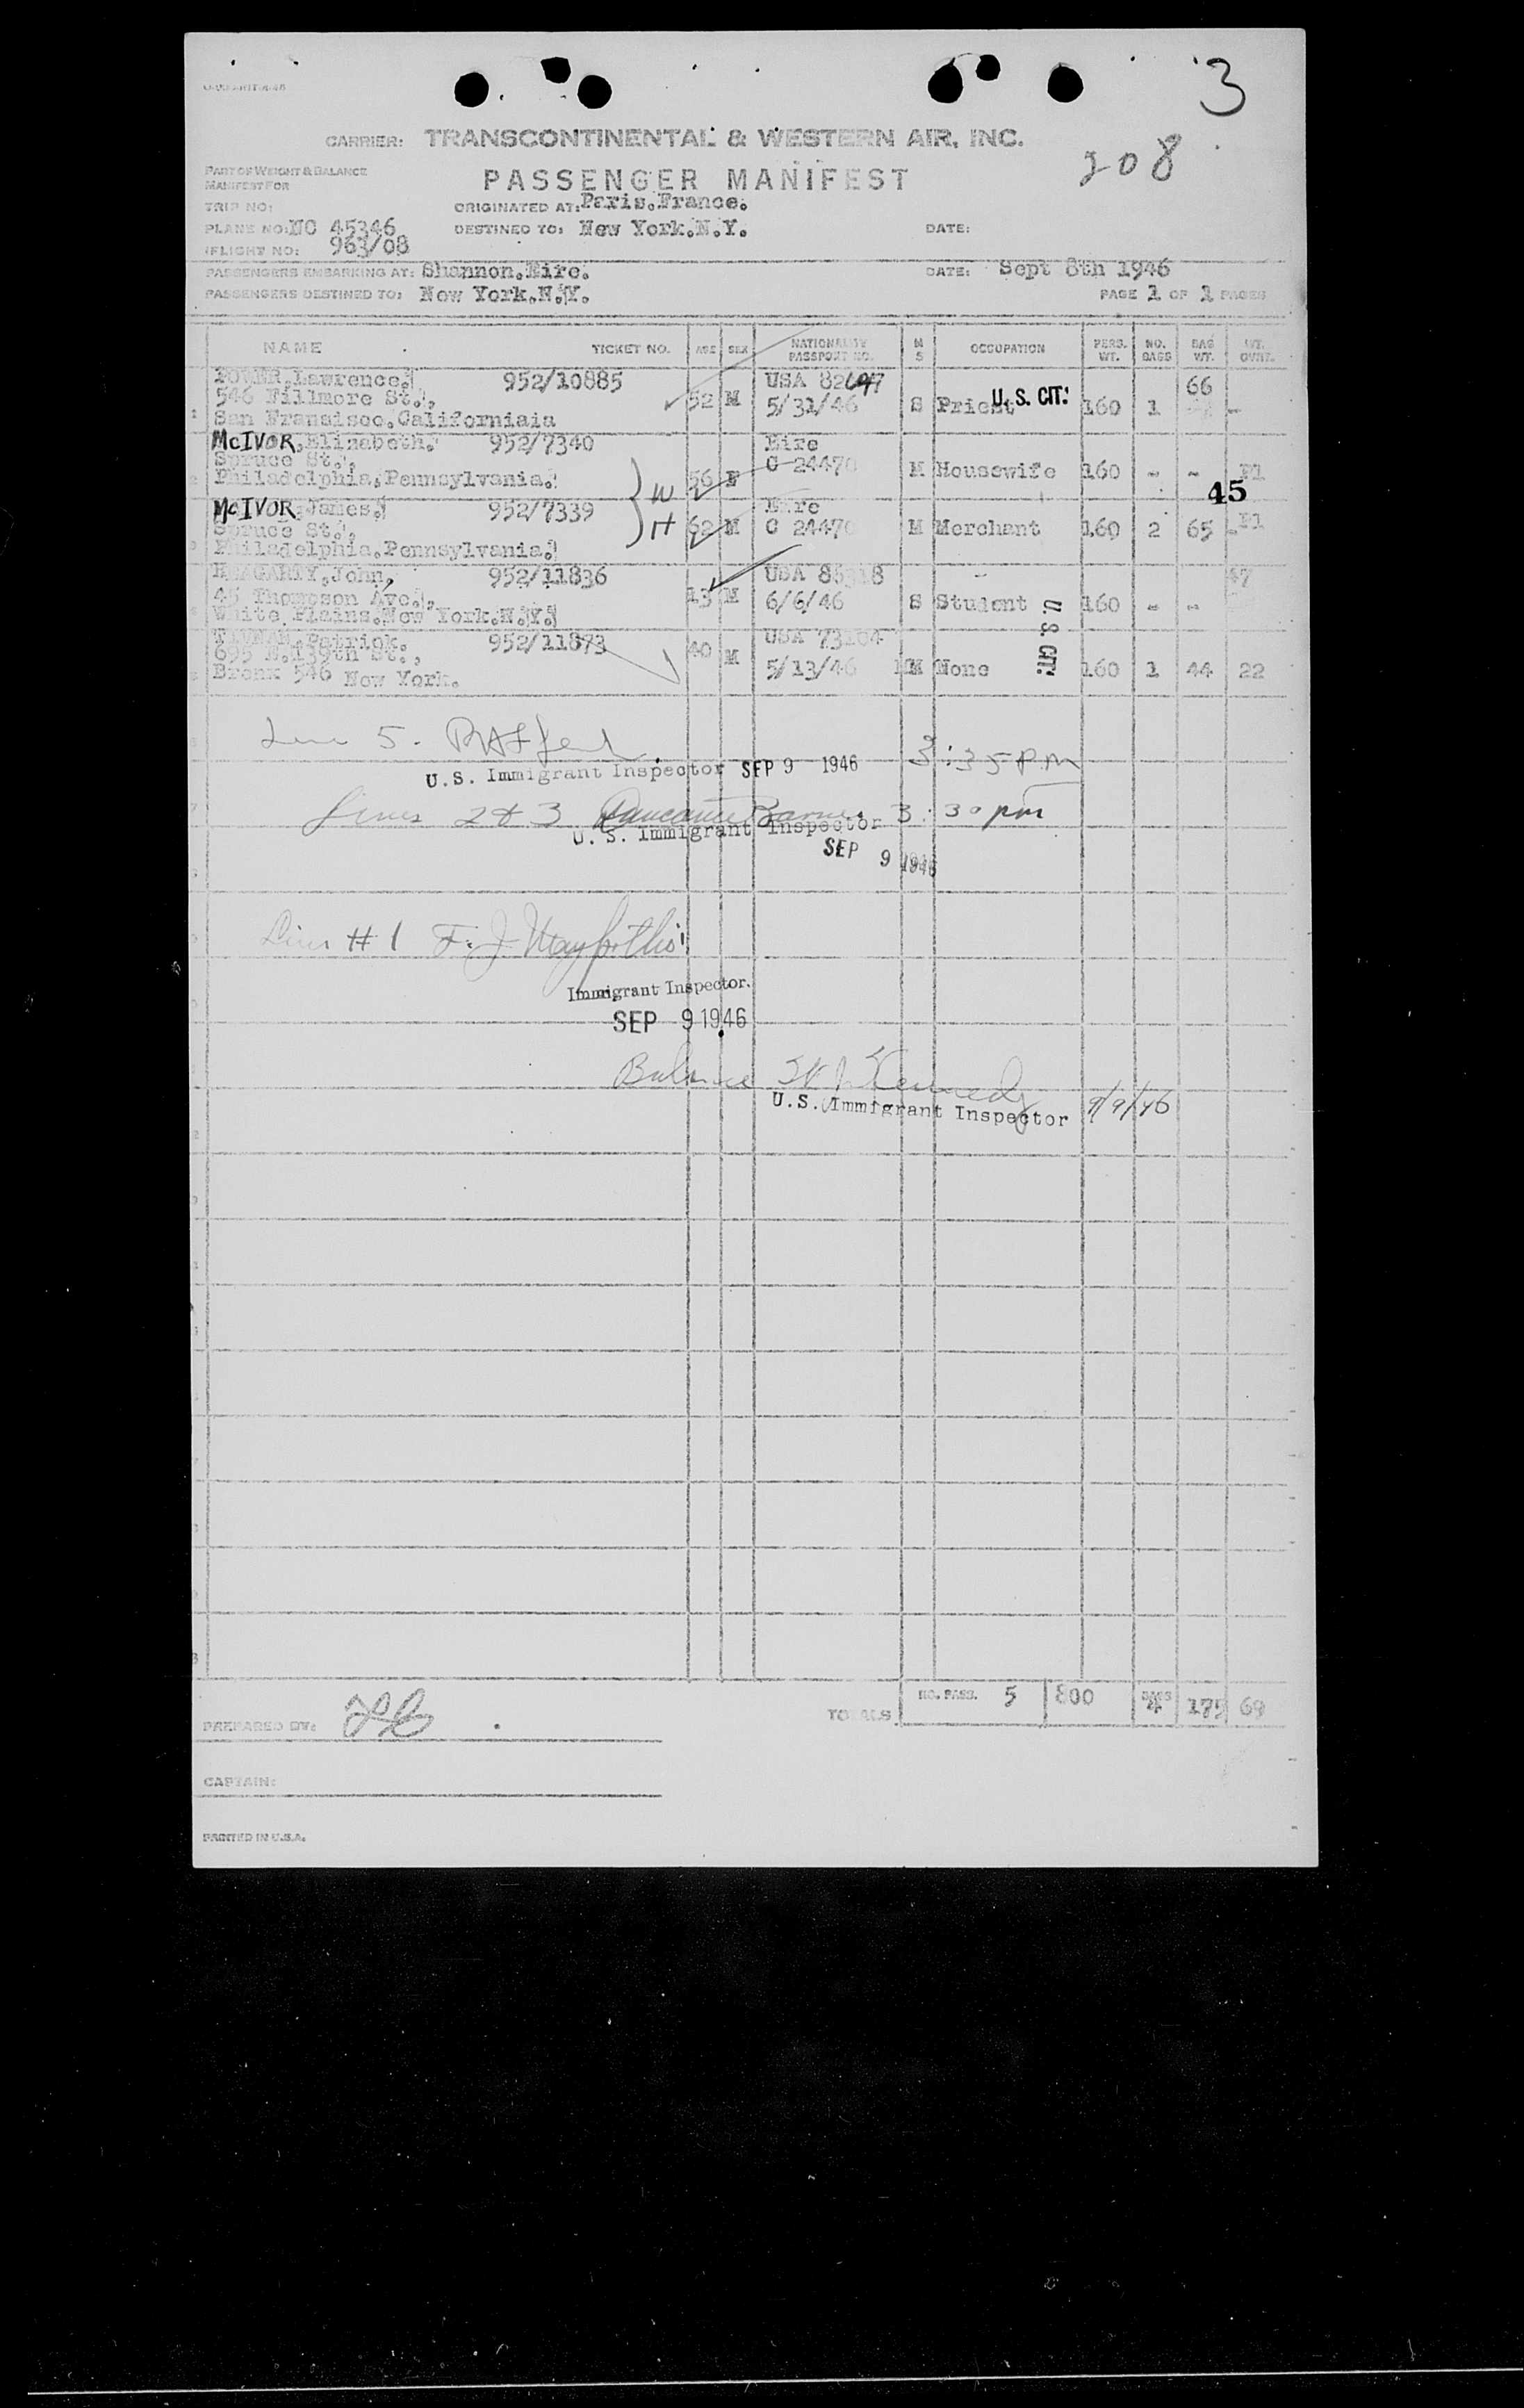 3
CARRIER: TRANSCONTINENTAL & WESTERN AIR, INC.
208
PART OF WEIGHT & BALANCE
MANIFEST FOR
PASSENGER MANIFEST
TRIP NO: ORIGINATED AT: Paris.France.
PLANE NO: NC 45346 DESTINED TO: New York.N.Y. DATE:
FLIGHT NO: 963/08
PASSENGERS EMBARKING AT: Shannon.Eire. DATE: Sept 8th 1946
PASSENGERS DESTINED TO: New York.N.Y. PAGE 1 OF 1 PAGES
NAME TICKET NO. AGE SEX NATIONALITY PASSPORT NO. M S OCCUPATION PERS. WT. NO. BAGS BAG WT.
POWER.Lawrence. 952/10885 USA 82647 66
546 Fillmore St., 52 M 5/31/46 S Priest U.S. CIT. 160 1 -
San Fransisco.Californiaia
McIVOR.Elizabeth. 952/7340 Eire
Spruce St., C 24470
Philadelphia.Pennsylvania. W 56 F M Housewife 160 - -
45
McIVOR.James. 952/7339 Eire
Spruce St., H 62 M C 24470 M Merchant 160 2 65
Philadelphia.Pennsylvania.
John, 952/11836 USA
45 Thompson Ave., 43 M 6/6/46 S Student U.S. CIT. 160 - -
White Plains.New York.N.Y.
Patrick. 952/11873 USA
695 E.139th St., 40 M 5/13/46 M None 160 1 44 22
Bronx 546 New York.
Line 5.
U.S. Immigrant Inspector SEP 9 1946 3:35 PM
Lines 2 & 3 3:30 pm
U.S. Immigrant Inspector
SEP 9 1946
Line #1 F. J.
Immigrant Inspector.
SEP 9 1946
Balance Kennedy
U.S. Immigrant Inspector 9/9/46
TOTALS NO. PASS. 5 800 BAGS 4 175 69
PREPARED BY:
CAPTAIN:
PRINTED IN U.S.A.